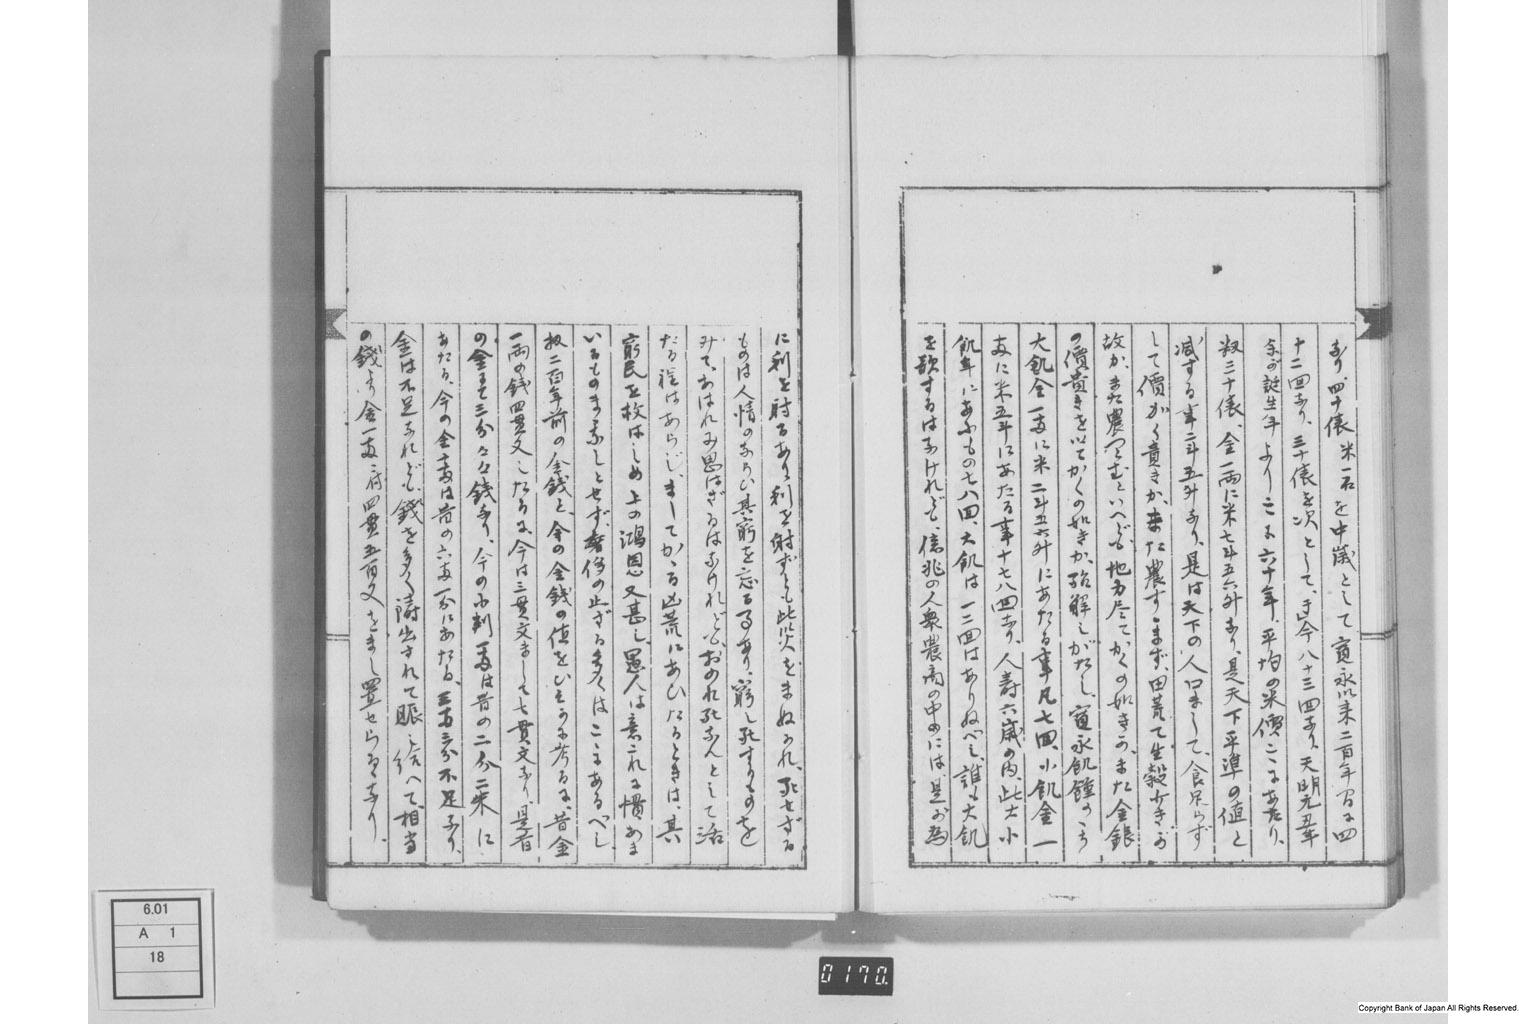 あり、四十俵 米一石を中歳として寛永以来二百年間に四
十二回あり、三十俵を次として、古今八十三四あり、天明元丑年
余が誕生年よりこゝに六十年、平均の米價こゝにあたり、
扨三十俵、金一両に米七斗五六升なり、是天下平準の値と
減する事二斗五升なり、是は天下の人口まして、食足らず
して價かく貴きか、また農すゝまず、田荒て生穀少きが
故か、また農つとむといへども地力尽てかくの如きか、また金銀
の價貴きを以てかくの如きか、弁解しがたし、寛永飢饉のころ
大飢金一両に米二斗五六升にあたる事凡七回、小飢金一
両に米五斗にあたる事十七八回なり、人壽六歳の内、此大小
飢年にあふもの七八回、大飢は一二回はありぬべし、誰も大飢
を歎するはなけれども、億兆の人衆農商の中には、是が為
に利を射るあり、利を射ずとも此災をまぬかれ、死せざる
ものは人情のならひ其窮を忘るゝ事あり、窮し死するものを
みて、あはれに思はざるはなけれども、おのれ死なんとして活
たる程はあらじ、ましてかゝる凶荒にあひたるときは、其
窮民を救はしめ上の鴻恩又甚し、愚人は意これに慣るま
いるもの多しとせず、奢侈の止ざる多くはこゝにあるべし
扨二百年前の金銭と、今の金銭の値をひそかに考るに、昔金
一両の銭四貫文したるに、今は三貫文まして七貫文なり、是昔
の金にて三分々々銭なり、今の小判一両は昔の二分二朱に
あたる、今の金一両は昔の六両一分にあたる、三百三分不足なり、
金は不足なれども、銭を多く鋳出されて賑し給へて、相当
の銭より金一両ニ付四貫五百文をまし置せらるゝなり、
6.01
A 1
18
0170.
Copyright Bank of Japan All Rights Reserved.